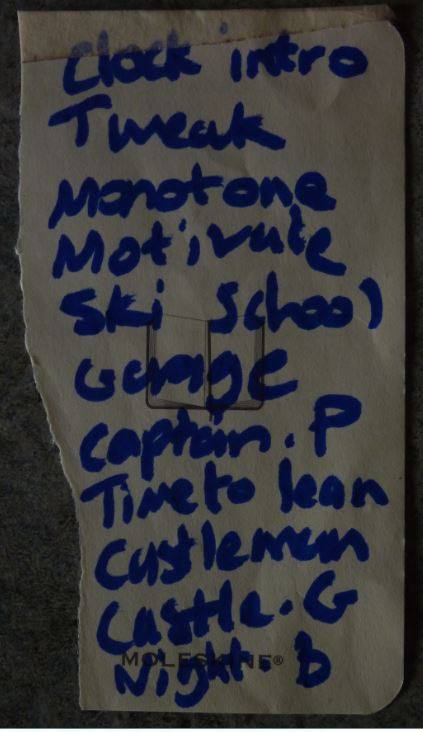 Clock intro
Tweak
Monotone
Motivate
Ski School
Garage
Captain. P
Time to lean
Castleman
Castle. G
MOLESKINE®
Night. b